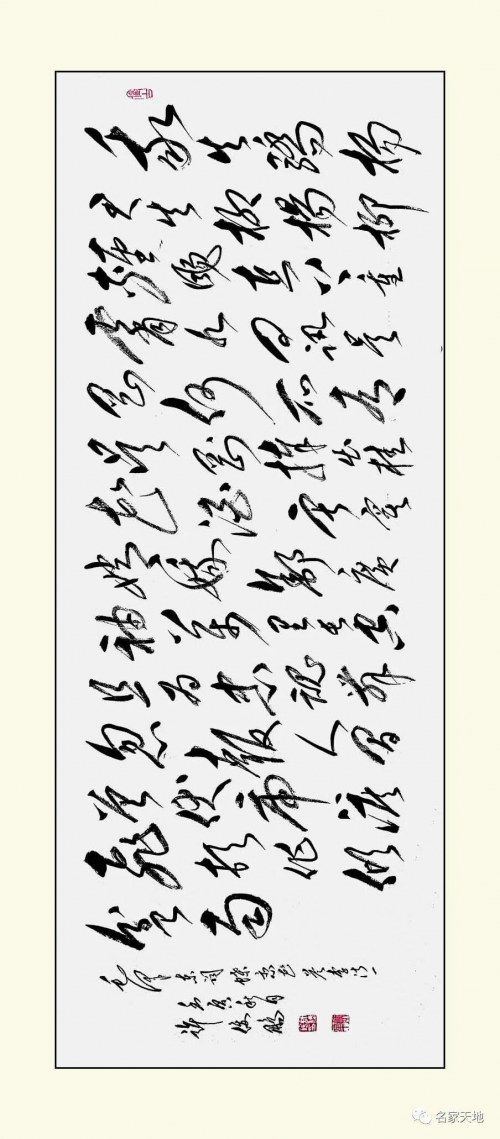 我失骄杨
君失柳杨柳
轻飏直上重
霄九问讯吴
刚何所有
吴刚捧出桂
花酒寂寞
嫦娥舒广
袖万里长空
且为忠魂舞
忽报人间
曾伏虎泪
飞顿作倾
盆雨
毛泽东词蝶恋花答李淑一
壬寅秋月
名家天地